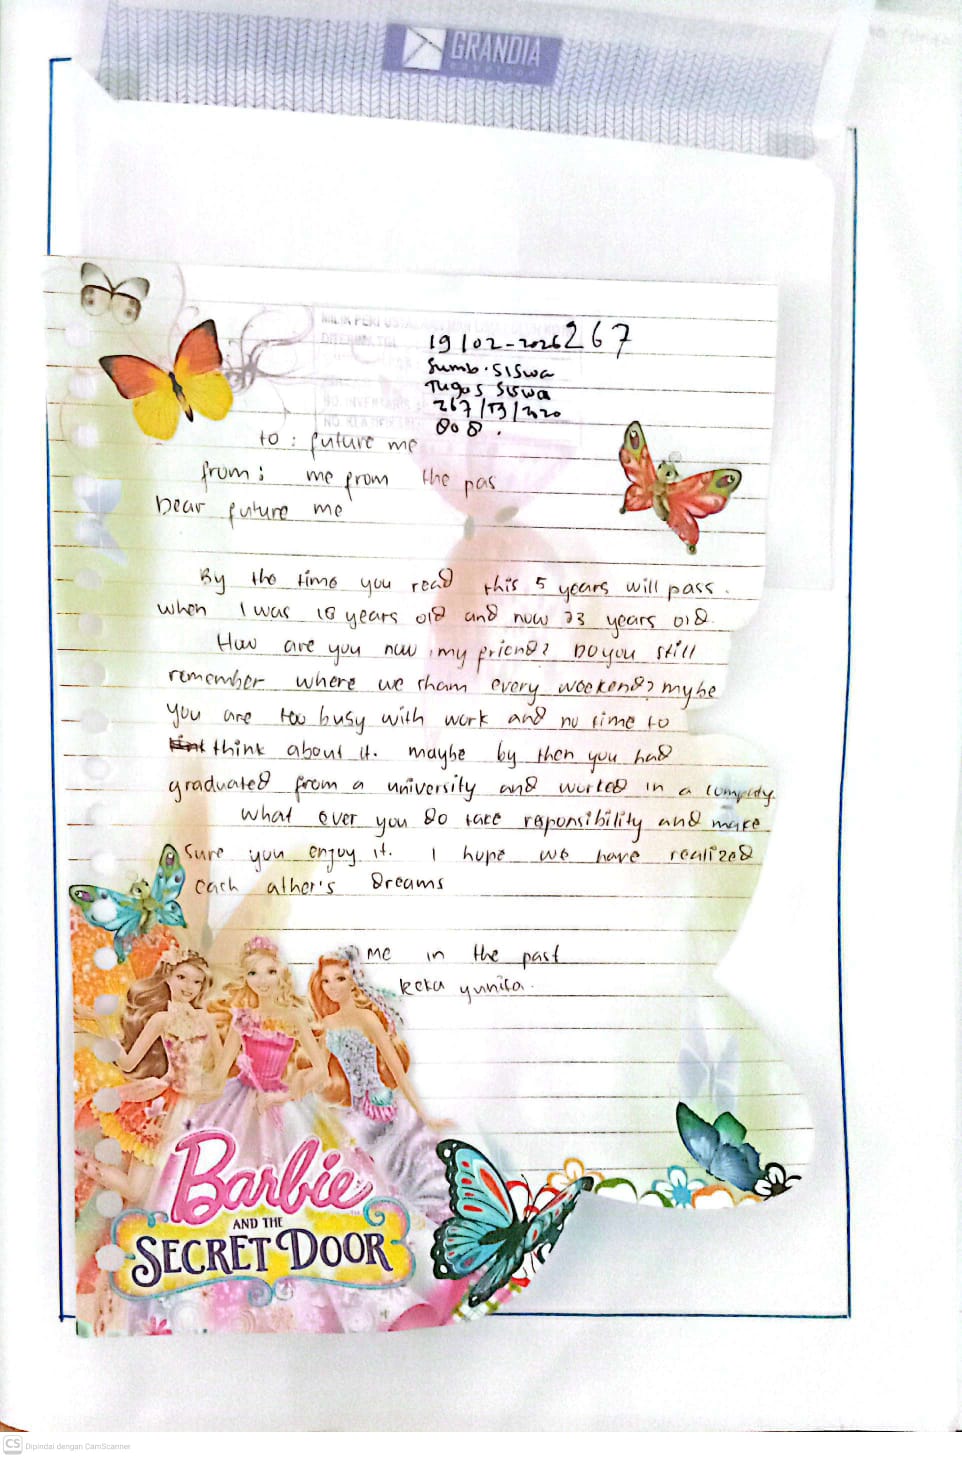 GRANDIA
19/02-2026 267
Sumb. Siswa
Tugas Siswa
267/TJ/2020
808.
to: future me
from: me from the pas
Dear future me
By the time you read this 5 years will pass.
when I was 18 years old and now 23 years old.
How are you now, my friend? Do you still
remember where we sham every weekend? mybe
you are too busy with work and no time to
think about it. maybe by then you had
graduated from a university and worked in a company.
what ever you do take reponsibility and make
sure you enjoy it. I hope we have realized
each ather's dreams
me in the past
keka yunita.
Barbie
AND THE
SECRET DOOR
CS Dipindai dengan CamScanner